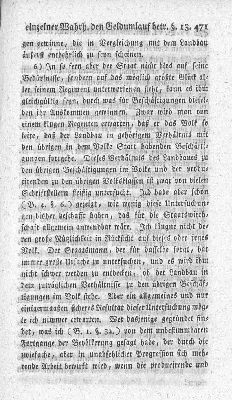 einzelner Wahrh. den Geldumlauf betr. §. 13. 471
gen gewinne, die in Vergleichung mit dem Landbau
äußerst entbehrlich zu seyn scheinen.
6) In so fern aber der Staat nicht blos auf seine
Bedürfnisse, sondern auf das möglich größte Glück al-
ler seinem Regiment unterworfenen sieht, kann es ihm
gleichgültig seyn, durch was für Beschäftigungen diesel-
ben ihr Auskommen gewinnen. Zwar wird man von
einem klugen Regenten erwarten, daß er das Volk so
leite, daß der Landbau in gehörigem Verhältniß mit
den übrigen in dem Volke Statt habenden Beschäfti-
gungen fortgehe. Dieses Verhältniß des Landbaues zu
den übrigen Beschäftigungen im Volke und der verzeh-
renden zu den übrigen Volksklassen ist zwar von vielen
Schriftstellern fleißig untersucht. Ich habe aber schon
(B. 1. §. 6.) gezeigt, wie wenig diese Untersuchun-
gen bisher beschafft haben, das für die Staatswirth-
schaft allgemein anwendbar wäre. Ich läugne nicht de-
ren große Nützlichkeit in Rücksicht auf dieses oder jenes
Volk. Der Staatsmann, der für dasselbe sorgt, hat
immer große Ursache zu untersuchen, und es wird ihm
nicht schwer werden zu entdecken, ob der Landbau in
dem zuträglichen Verhältnisse zu den übrigen Beschäf-
tigungen im Volk stehe. Aber ein allgemeines und nur
einigermaaßen sicheres Resultat dieser Untersuchung wage
ich nimmer erwarten. Wer dasjenige gegründet fin-
det, was ich (B. 1. §. 32.) von dem unbestimmbaren
Fortgange der Bevölkerung gesagt habe, der durch die
zwiefache, aber in unabsehlicher Progression sich meh-
rende Arbeit bewirkt wird, wenn die producirende und